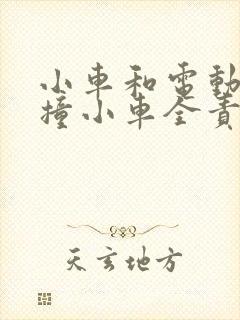 小車和電動
撞小車全責
天玄地方